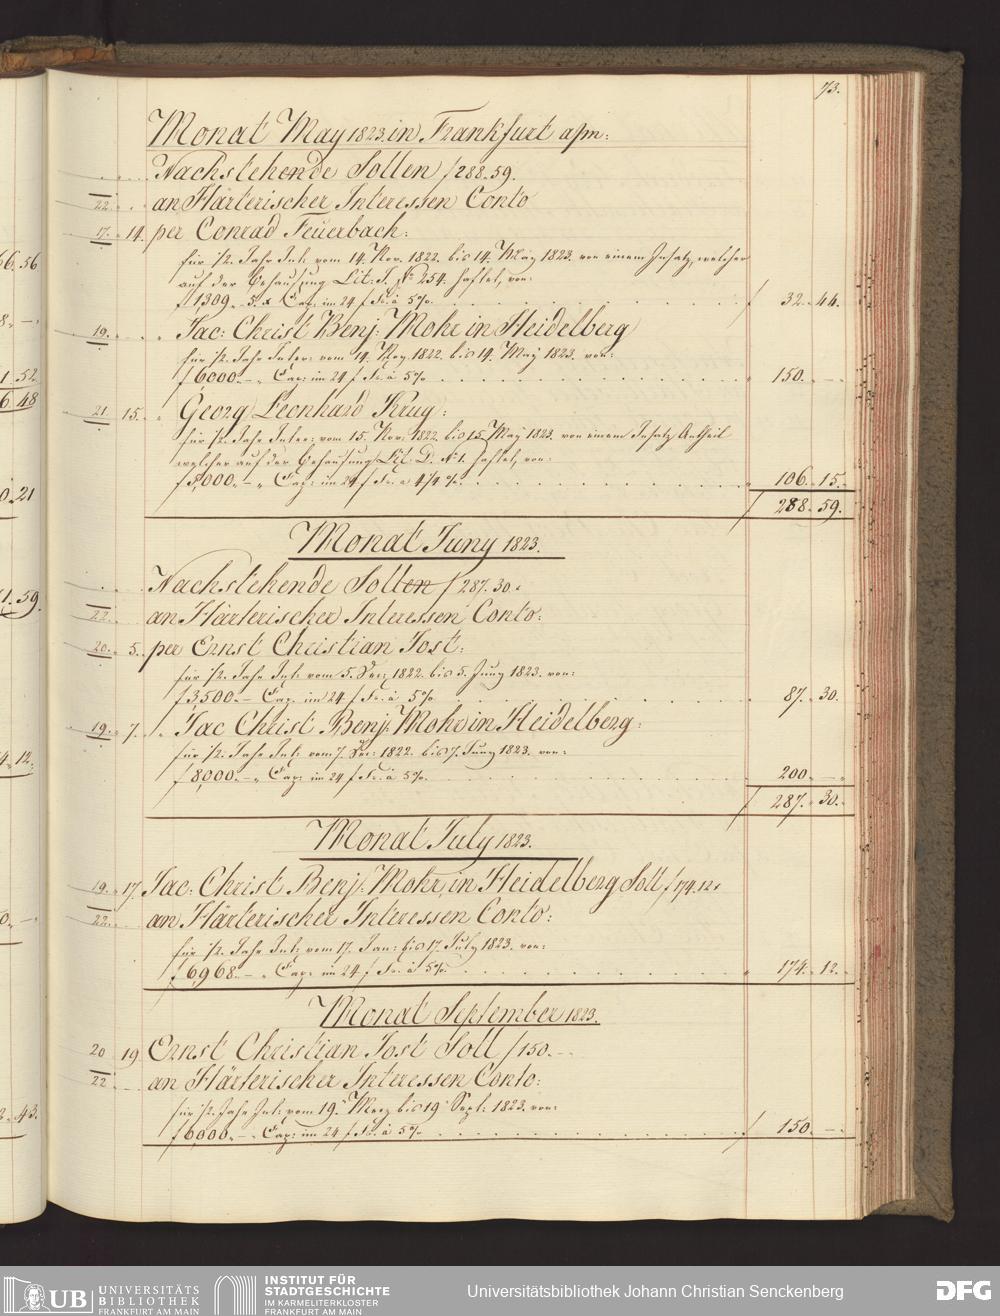 73.
Monat May 1823. in Frankfurt a/m:
Nachstehende Sollen f 288. 59.
22. an Härterischer Interessen Conto
17. 14. per Conrad Feuerbach:
für 1/2. Jahr Int: vom 14. Nov. 1822. bis 14. May 1823. von einem Insatz, welcher
auf der Behausung Lit: J. No. 254. haftet, von
f 1309. 5. x Cap: im 24 f Fs. à 5%. f 32. 44.
19. Jac: Christ Benj: Mohr in Heidelberg
für 1/2. Jahr Inter: vom 14. Nov. 1822. bis 14. May 1823. von:
f 6000. – „ Cap: im 24 f Fs. à 5% 150. –
21. 15. „ Georg Leonhard Krug:
für 1/2. Jahr Inter: vom 15. Nov: 1822. bis 15. May 1823. von einem Insatz Antheil
welcher auf der Behausung Lit: D. No 1. haftet, von:
f 5,000. – „ Cap: im 24 f Fs. à 4 1/4 %. 106. 15.
f 288. 59.
Monat Juny 1823.
Nachstehende Sollen f 287. 30.
22. an Härterischer Interessen Conto:
20. 5. per Ernst Christian Jost:
für 1/2. Jahr Int: vom 5. Dec: 1822. bis 5. Juny 1823. von:
f 3500. – Cap: im 24 f Fs. à 5% 87. 30.
19. 7. „ Jac Christ Benj: Mohr in Heidelberg:
für 1/2. Jahr Int: vom 7. Dec: 1822. bis 7. Juny 1823. von:
f 8,000. – „ Cap: im 24 f Fs. à 5%. 200. –
f 287. 30.
Monat July 1823.
19. 17. Jac: Christ Benj: Mohr, in Heidelberg Soll f 174. 12.
22. an Härterischer Interessen Conto:
für 1/2. Jahr Int: vom 17. Jan: bis 17. July 1823. von:
f 6,968. – „ Cap: im 24 f Fs. à 5%. 174. 12.
Monat September 1823.
20 19. Ernst Christian Jost Soll f 150. –
22 an Härterischer Interessen Conto:
für 1/2. Jahr Int: vom 19. Merz bis 19 Sept: 1823. von:
f 6,000. – Cap: im 24 f Fs. à 5% f 150. –
56
1. 52
6 48
21
59.
12.
43.
UB UNIVERSITÄTS
BIBLIOTHEK
FRANKFURT AM MAIN
INSTITUT FÜR
STADTGESCHICHTE
IM KARMELITERKLOSTER
FRANKFURT AM MAIN
Universitätsbibliothek Johann Christian Senckenberg
DFG